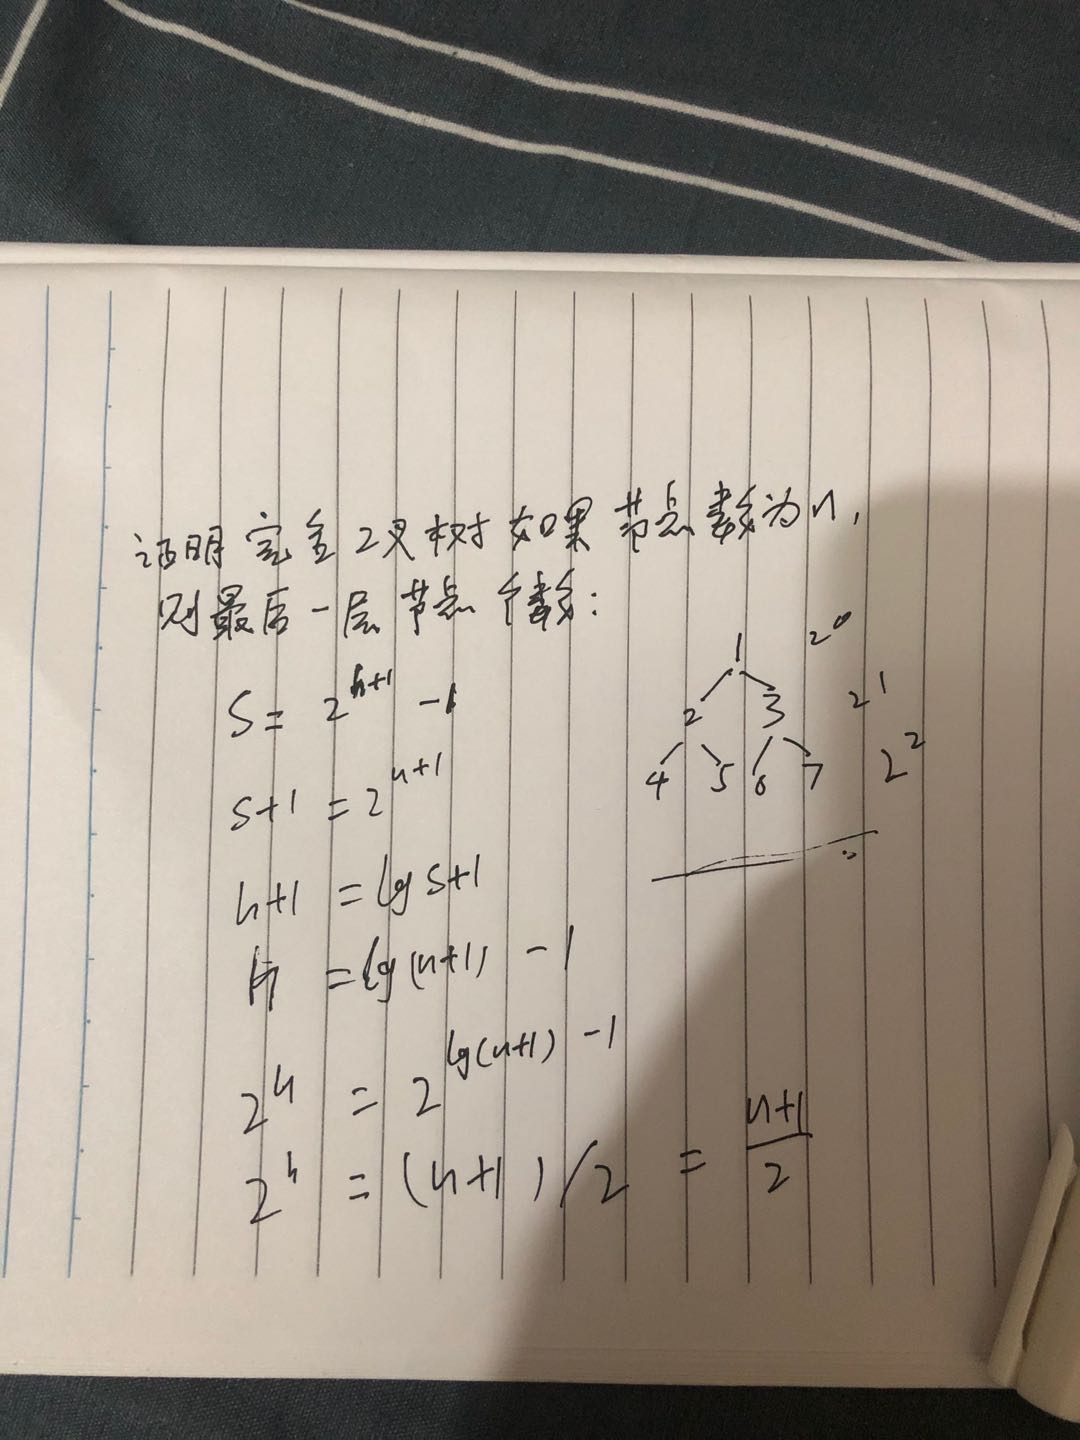 证明完全2叉树如果节点数为n,
则最后一层节点个数:
S = 2^{h+1} - 1
S+1 = 2^{h+1}
h+1 = lg S+1
h = lg(n+1) - 1
2^h = 2^{lg(n+1) - 1}
2^h = (n+1)/2 = \frac{n+1}{2}
1 2^0
2 3 2^1
4 5 6 7 2^2